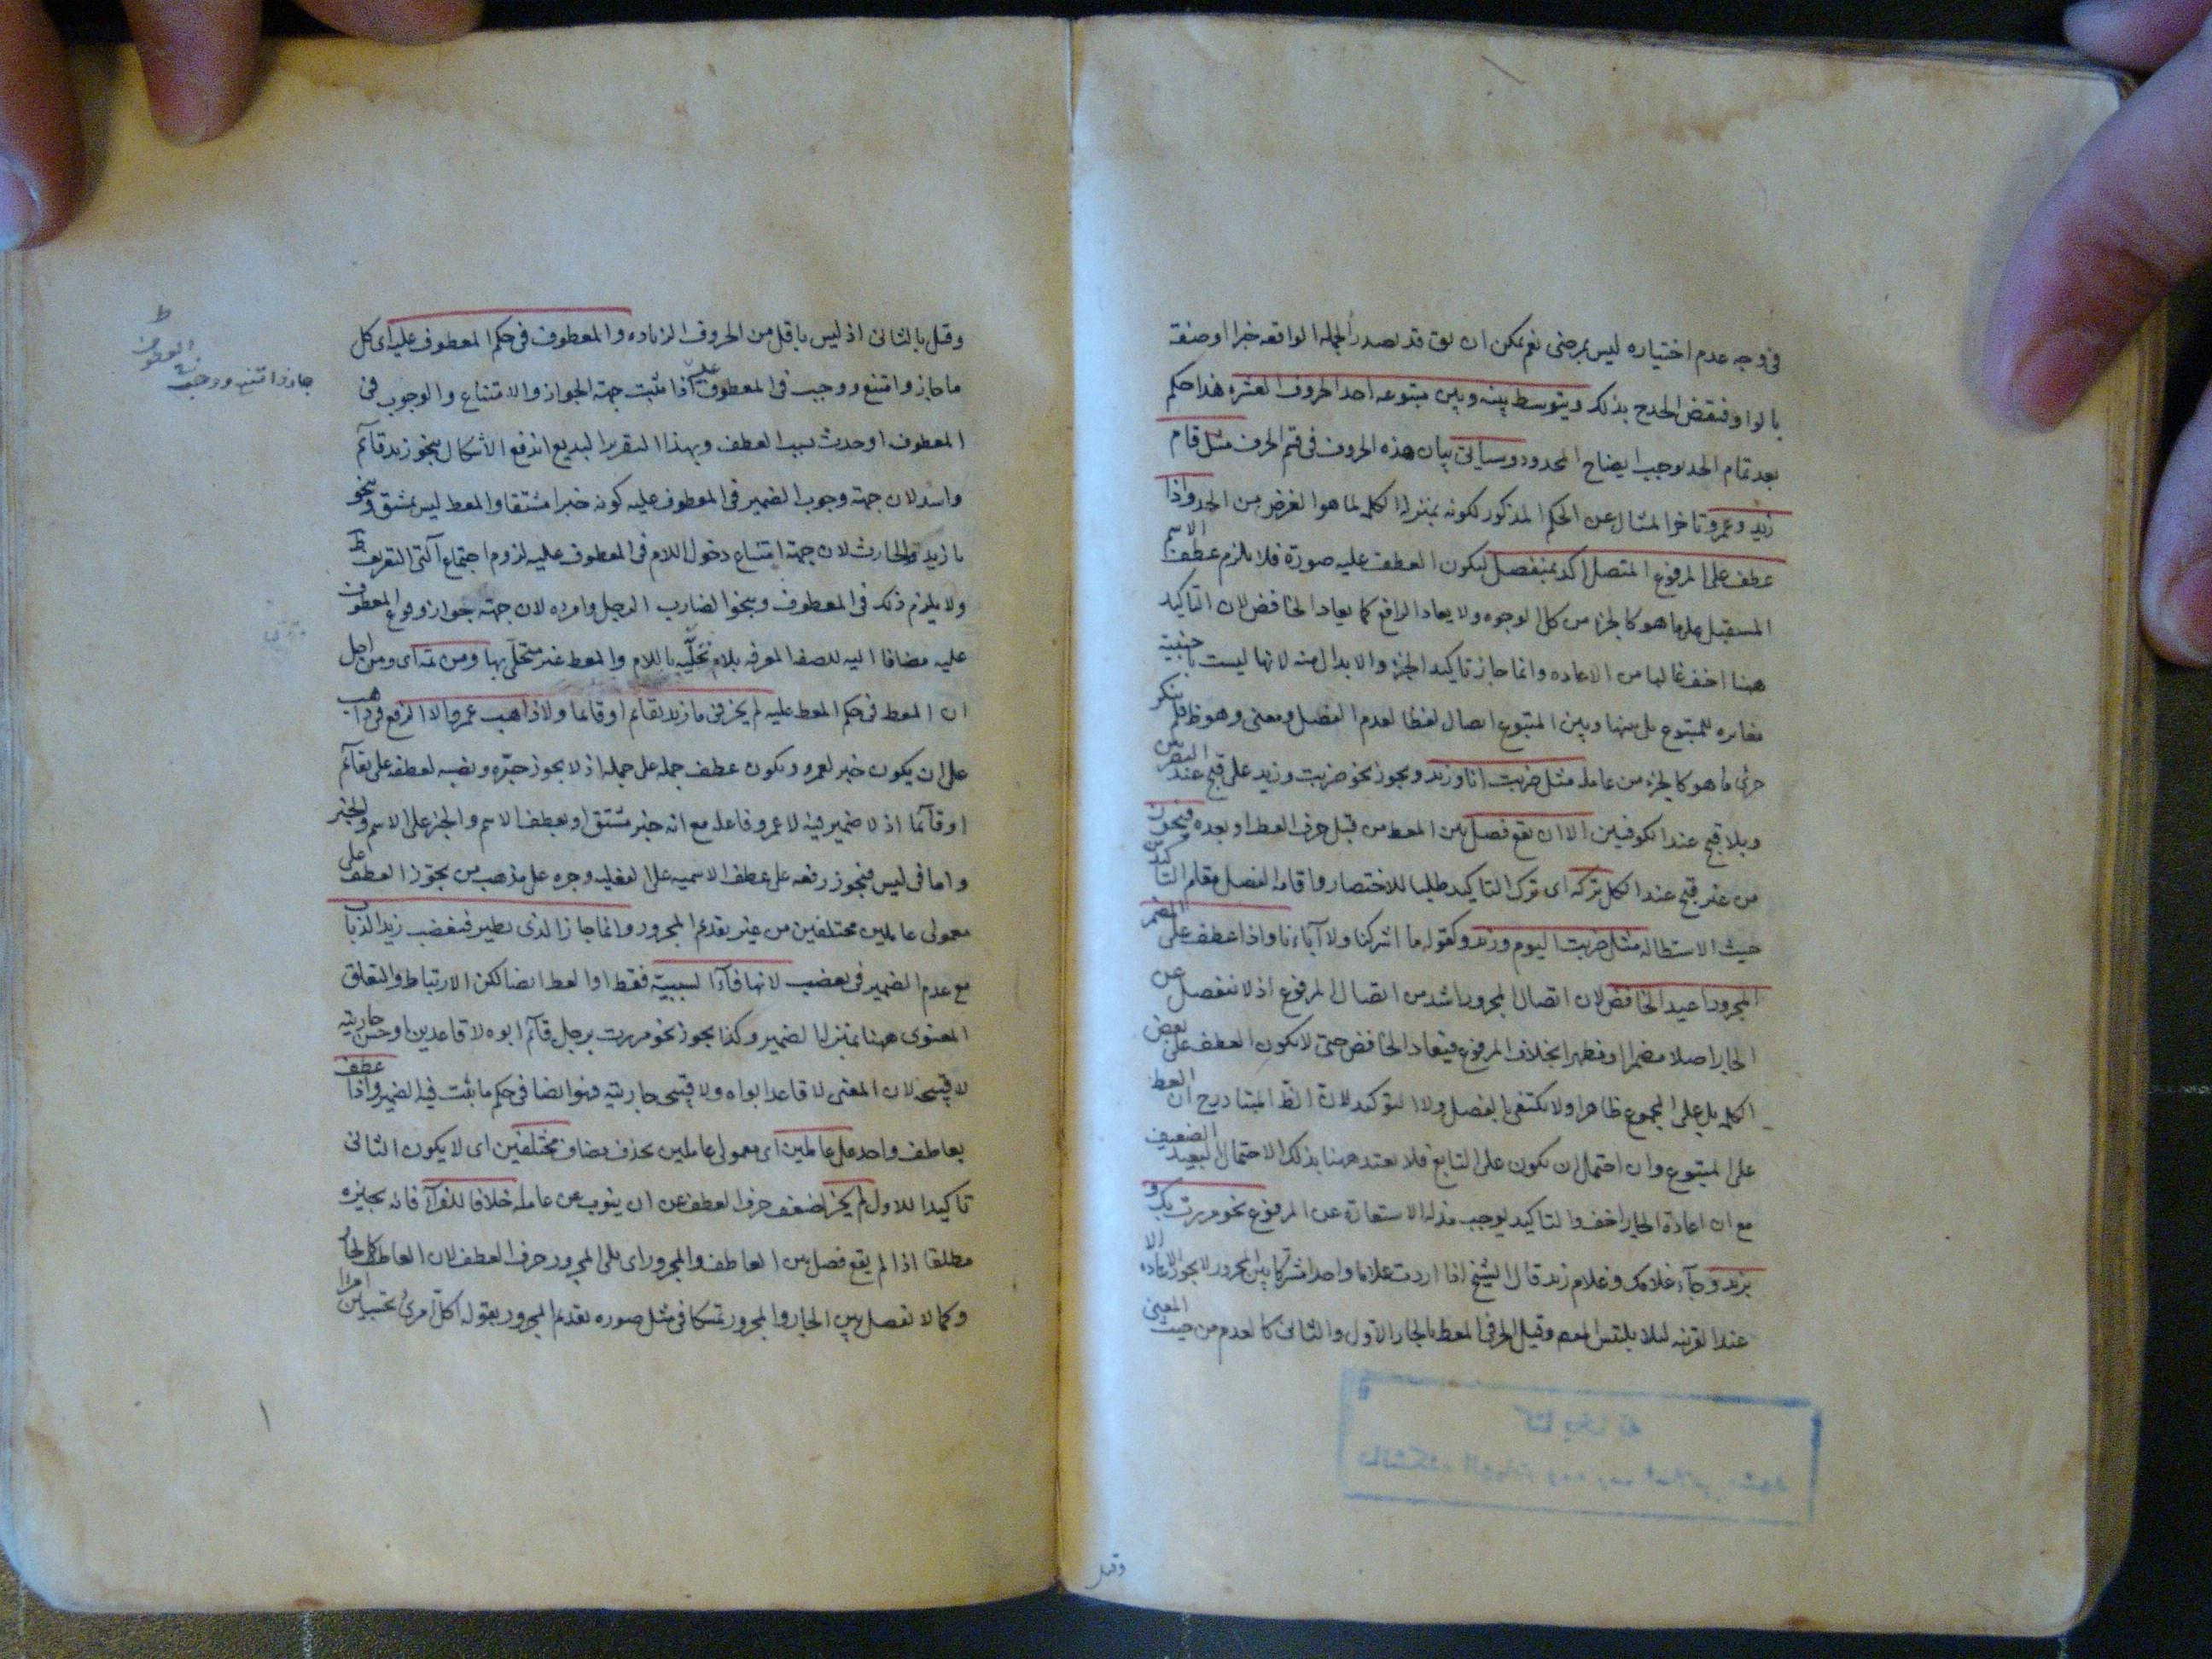 فى وجه عدم اختياره ليس بمرضى نعم يمكن ان يق قد يصدر الجمله الواقعه خبرا او صفة
بالواو فنقض الحد ح بذلك ويتوسط بينه وبين متبوعه احد الحروف العشره هذا حكم
بعد تمام الحد يوجب ايضاح المحدود وسياتى بيان هذه الحروف فى قسم الحرف مثل قام
زيد وعمرو تاخر المثال عن الحكم المذكور لكونه بمنزلة الكلمه لما هو الغرض من الحد واذا
عطف على المرفوع المتصل اكد بمنفصل ليكون العطف عليه صورة فلا يلزم عطف الاسم
المستقبل على ما هو كالجزء من كل الوجوه ولا يعاد الرافع كما يعاد الخافض لان التاكيد
ههنا اخف غالبا من الاعاده وانما جاز تاكيد الجزء والابدال منه لانها ليست باجنبية
مغايره للمتبوع بل بينها وبين المتبوع اتصال لفظا لعدم الفصل ومعنى وهو ظ فلم ينكر
جرى ما هو كالجزء من عامله مثل ضربت انا وزيد ويجوز نحو ضربت وزيد على قبح عند البصريين
وبلا قبح عند الكوفيين الا ان يقع فصل بين المعط من قبل حرف العط او بعده فيجوز
من غير قبح عند الكل تركه اى ترك التاكيد طلبا للاختصار واقامة الفصل مقام التاكيد من
حيث الاستطاله مثل ضربت اليوم وزيد وكقوله ما اشركنا ولا آباءنا واذا عطف على المضمر
المجرور اعيد الخافض لان اتصال المجرور اشد من اتصال المرفوع اذ لا ينفصل عن
الجار اصلا مضمرا او مظهرا بخلاف المرفوع فيعاد الخافض حتى لا يكون العطف على بعض
الكلمه بل على المجموع ظاهرا ولا يكتفى بالفصل ولا التوكيد لان الظ المتبادر ح ان العط
على المتبوع وان احتمل ان يكون على التابع فلا يعتد ههنا بذلك الاحتمال البعيد الضعيف
مع ان اعادة الجار اخف والتاكيد يوجب مذلة الاستعارة عن المرفوع نحو مررت بك و
بزيد وجآء غلامك وغلام زيد قال الشيخ اذا اردت غلاما واحدا مشتركا بين المجرور لا يجوز الاعاده الا
عند القرينه لئلا يلتبس المعط وقيل الجر فى المعط بالجار الاول والثانى كالعدم من حيث المعنى
كتابخانه
دانشكده الهيات ومعارف اسلامى مشهد
وقيل
وقيل بالثانى اذ ليس باقل من الحروف الزياده والمعطوف فى حكم المعطوف عليه اى كل
ما جاز وامتنع ووجب فى المعطوف عليه اذا ثبت جهة الجواز والامتناع والوجوب فى
المعطوف او حدث بسبب العطف وبهذا التقرير البديع اندفع الاشكال بنحو زيد قائم
واسد لان جهة وجوب الضمير فى المعطوف عليه كونه خبرا مشتقا والمعط ليس بمشتق وبنحو
يا زيد والحارث لان جهة امتناع دخول اللام فى المعطوف عليه لزوم اجتماع آلتى التعريف
ولا يلزم ذلك فى المعطوف وبنحو الضارب الرجل وامرده لان جهة جواز وقوع المعطوف
عليه مضافا اليه للصفة المعرفه بلام تحلّيه باللام والمعط غير متحلّى بها ومن ثمه اى ومن اجل
ان المعط فى حكم المعط عليه لم يجز فى ما زيد بقائم او قائما ولا ذاهب عمرو الا الرفع فى ذاهب
على ان يكون خبر لعمرو ويكون عطف جمله على جمله اذ لا يجوز جرّه ونصبه لعطفه على بقائم
او قآئما اذ لا ضمير فيه لا عمرو فاعله مع انه خبر مشتق او يعطف الاسم والخبر على الاسم والخبر
واما فى ليس فيجوز رفعه على عطف الاسميه على الفعليه وجره على مذهب من يجوّز العطف على
معمولى عاملين مختلفين من غير تقديم المجرور وانما جاز الذى يطير فيغضب زيد الذباب
مع عدم الضمير فى يغضب لانها فآء السببيّة فقط او العط ايضا لكن الارتباط والتعلق
المعنوى ههنا بمنزلة الضمير وكذا يجوز نحو مررت برجل قآئم ابوه لا قاعدين او حسن جاريته
لا قبيحه لان المعنى لا قاعد ابواه ولا قبيحى جاريته فهو ايضا فى حكم ما يثبت فيه الضمير واذا عطف
بعاطف واحد على عاملين اى معمولى عاملين بحذف مضاف مختلفين اى لا يكون الثانى
تاكيدا للاول لم يجز لضعف حرف العطف عن ان ينوب عن عامله خلافا للفرآء فانه يجيزه
مطلقا اذا لم يقع فصل بين العاطف والمجرور اى يلى المجرور حرف العطف لان العاطف كالجار
وكما لا تفصل بين الجار والمجرور تمسكا فى مثل صوره تقديم المجرور بقوله اكل امرئ تحسبين امرا
جاز وامتنع ووجب فى
المعطوف
ط